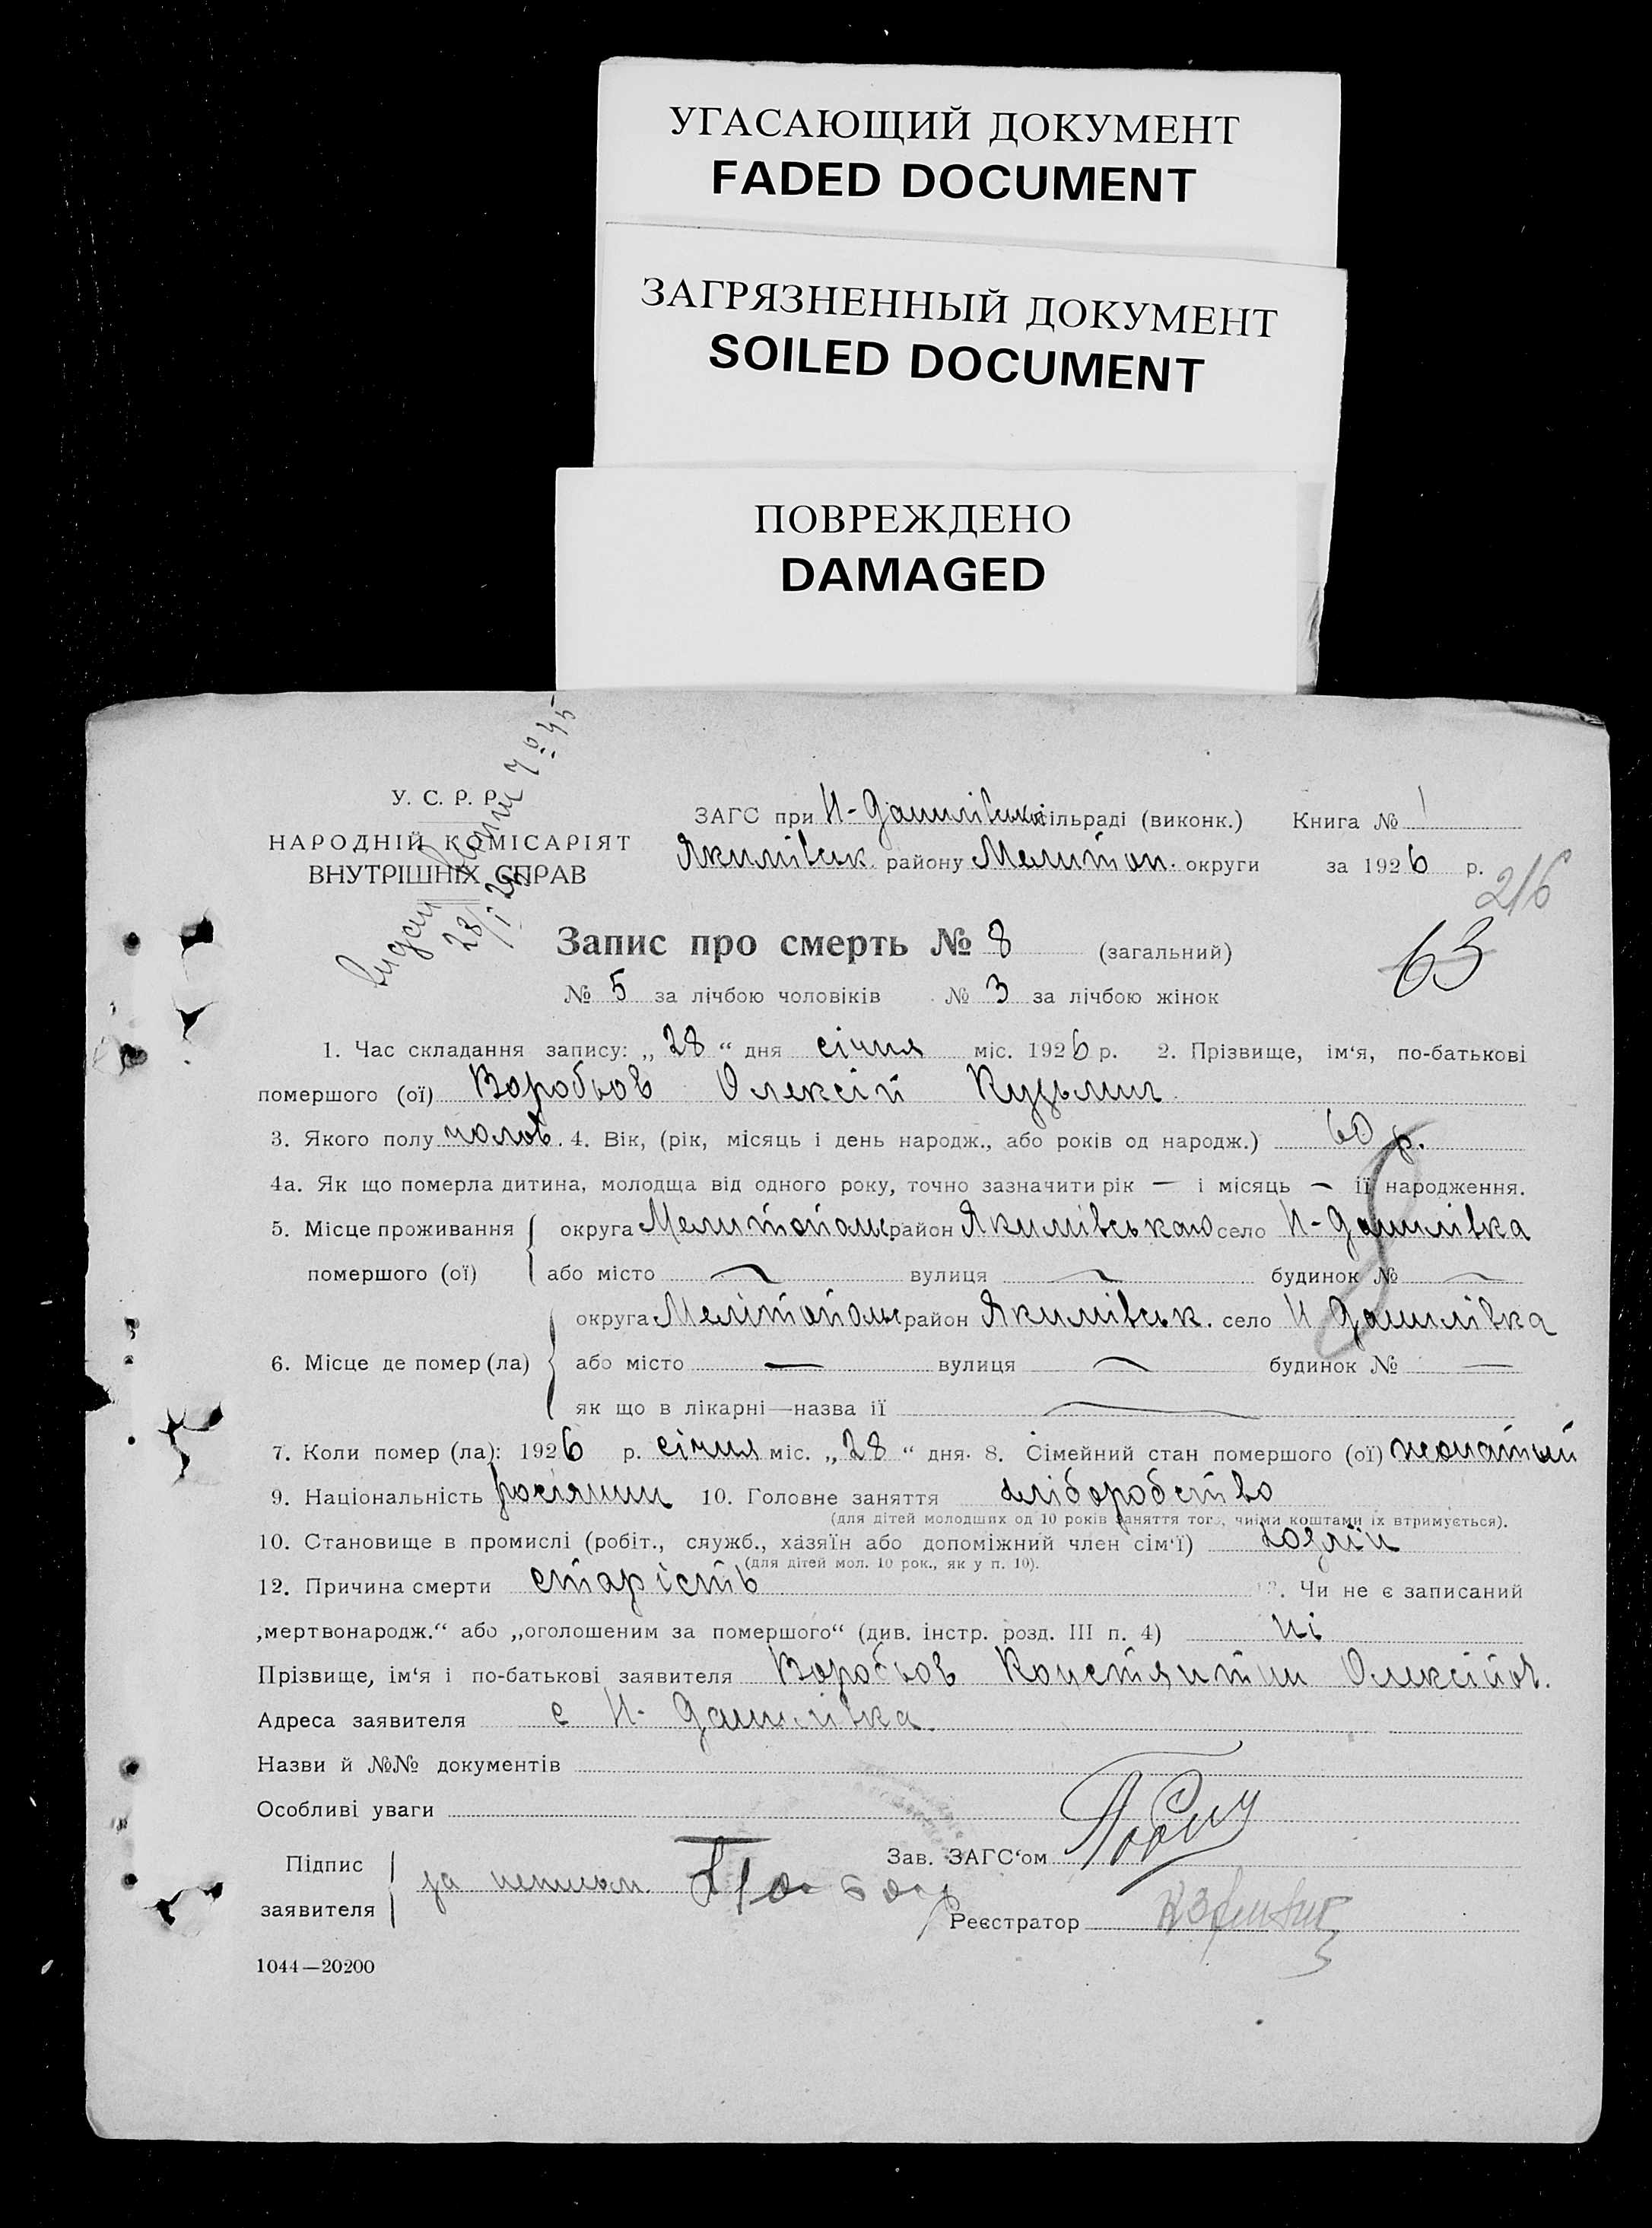 УГАСАЮЩИЙ ДОКУМЕНТ
FADED DOCUMENT
ЗАГРЯЗНЕННЫЙ ДОКУМЕНТ
SOILED DOCUMENT
ПОВРЕЖДЕНО
DAMAGED
У. С. Р. Р.
НАРОДНІЙ КОМІСАРІЯТ
ВНУТРІШНІХ СПРАВ
ЗАГС при Н-Данилівськ сільраді (виконк.) Книга № 1
Якимівськ. району Мелитоп. округи за 1926 р.
216
63
Запис про смерть № 8 (загальний)
№ 5 за лічбою чоловіків № 3 за лічбою жінок
1. Час складання запису: „28“ дня січня міс. 1926 р. 2. Прізвище, ім‘я, по-батькові
помершого (ої) Воробьов Олексій Кузьмич
3. Якого полу чолов. 4. Вік, (рік, місяць і день народж., або років од народж.) 60 р.
4а. Як що померла дитина, молодща від одного року, точно зазначити рік — і місяць — її народження.
5. Місце проживання округа Мелитопольс район Якимівського село Н-Данилівка
помершого (ої) або місто — вулиця — будинок № —
округа Мелітопольс район Якимівськ. село Н Данилівка
6. Місце де помер (ла) або місто — вулиця — будинок № —
як що в лікарні—назва її —
7. Коли помер (ла): 1926 р. січня міс. „28“ дня. 8. Сімейний стан помершого (ої) жонатий
9. Національність росіянин 10. Головне заняття хліборобство
(для дітей молодших од 10 років заняття того, чиїми коштами їх втримується).
10. Становище в промислі (робіт., служб., хазяїн або допоміжний член сім‘ї) хозяїн
(для дітей мол. 10 рок., як у п. 10).
12. Причина смерти старість 13. Чи не є записаний
„мертвонародж.“ або „оголошеним за помершого“ (див. інстр. розд. III п. 4) ні
Прізвище, ім‘я і по-батькові заявителя Воробьов Констянтин Олексійов.
Адреса заявителя с Н- Данилівка
Назви й №№ документів
Особливі уваги
Підпис
заявителя за неписьм.
Зав. ЗАГС‘ом
Реєстратор
1044—20200